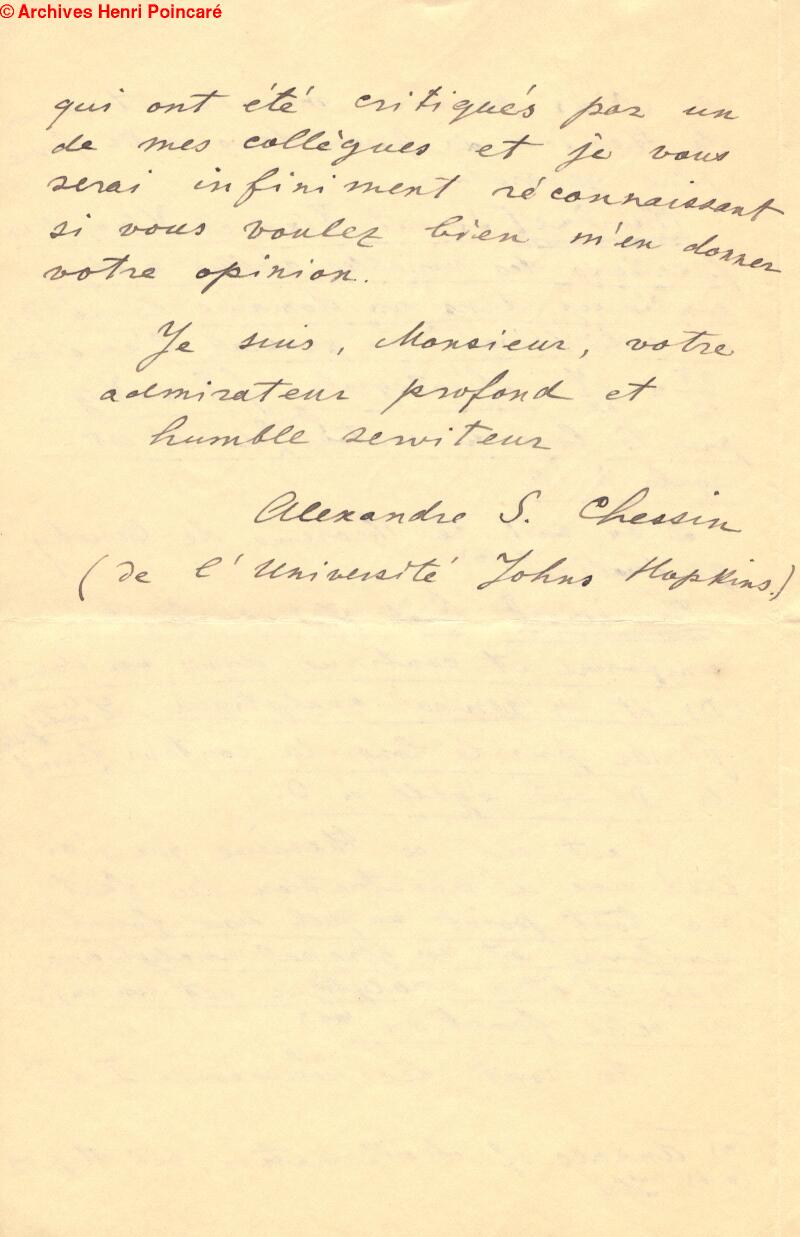 © Archives Henri Poincaré
qui ont été critiqués par un
de mes collègues et je vous
serai infiniment réconnaissant
si vous voulez bien m'en donner
votre opinion.
Je suis, Monsieur, votre
admirateur profond et
humble serviteur
Alexandre S. Chessin
(de l'Université Johns Hopkins.)